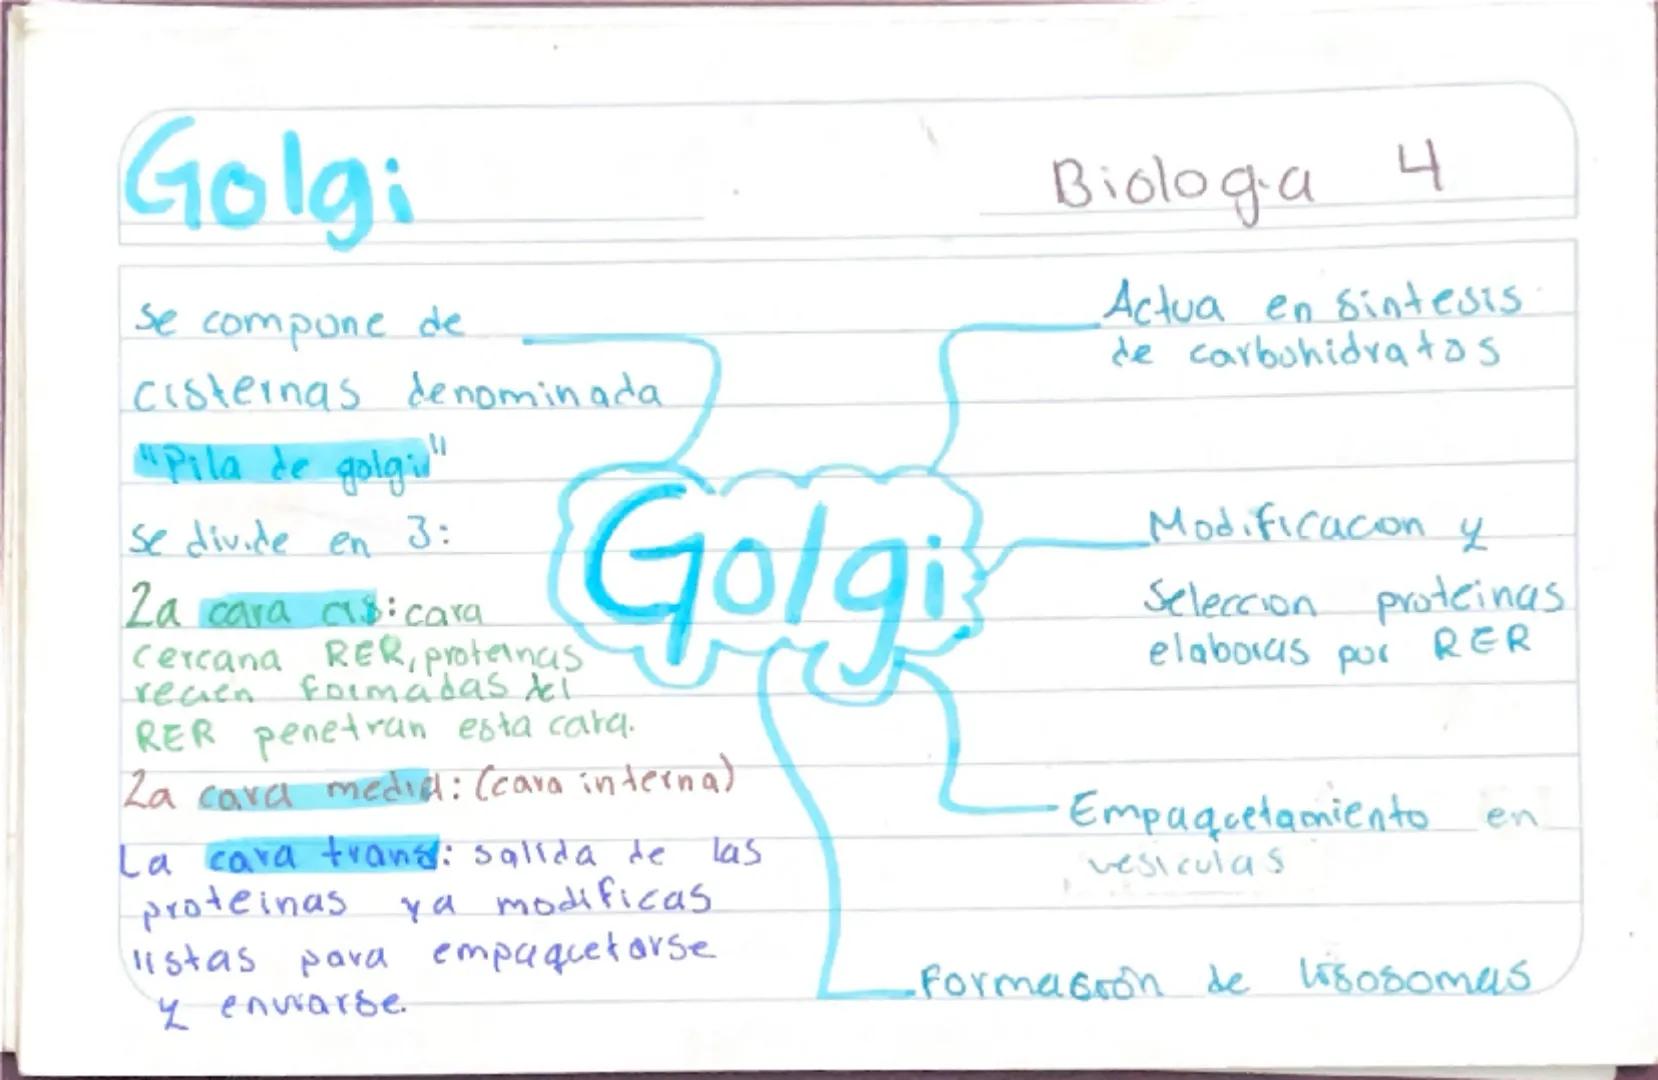 Golgi
Biologia 4
se compone de
cisternas denominada
"Pila de golgi"
se divide en 3:
La cara cis: cara
cercana RER, proteinas
recien formadas del
RER penetran esta cara.
La cara media: (cara interna)
La cara trans: salida de las
proteinas ya modificas
listas para empaquetarse
y enviarse.
Golgi
Actua en sintesis
de carbohidratos
Modificacion y
Seleccion proteinas
elaboras por RER
Empaquetamiento en
vesiculas
Formación de lisosomas